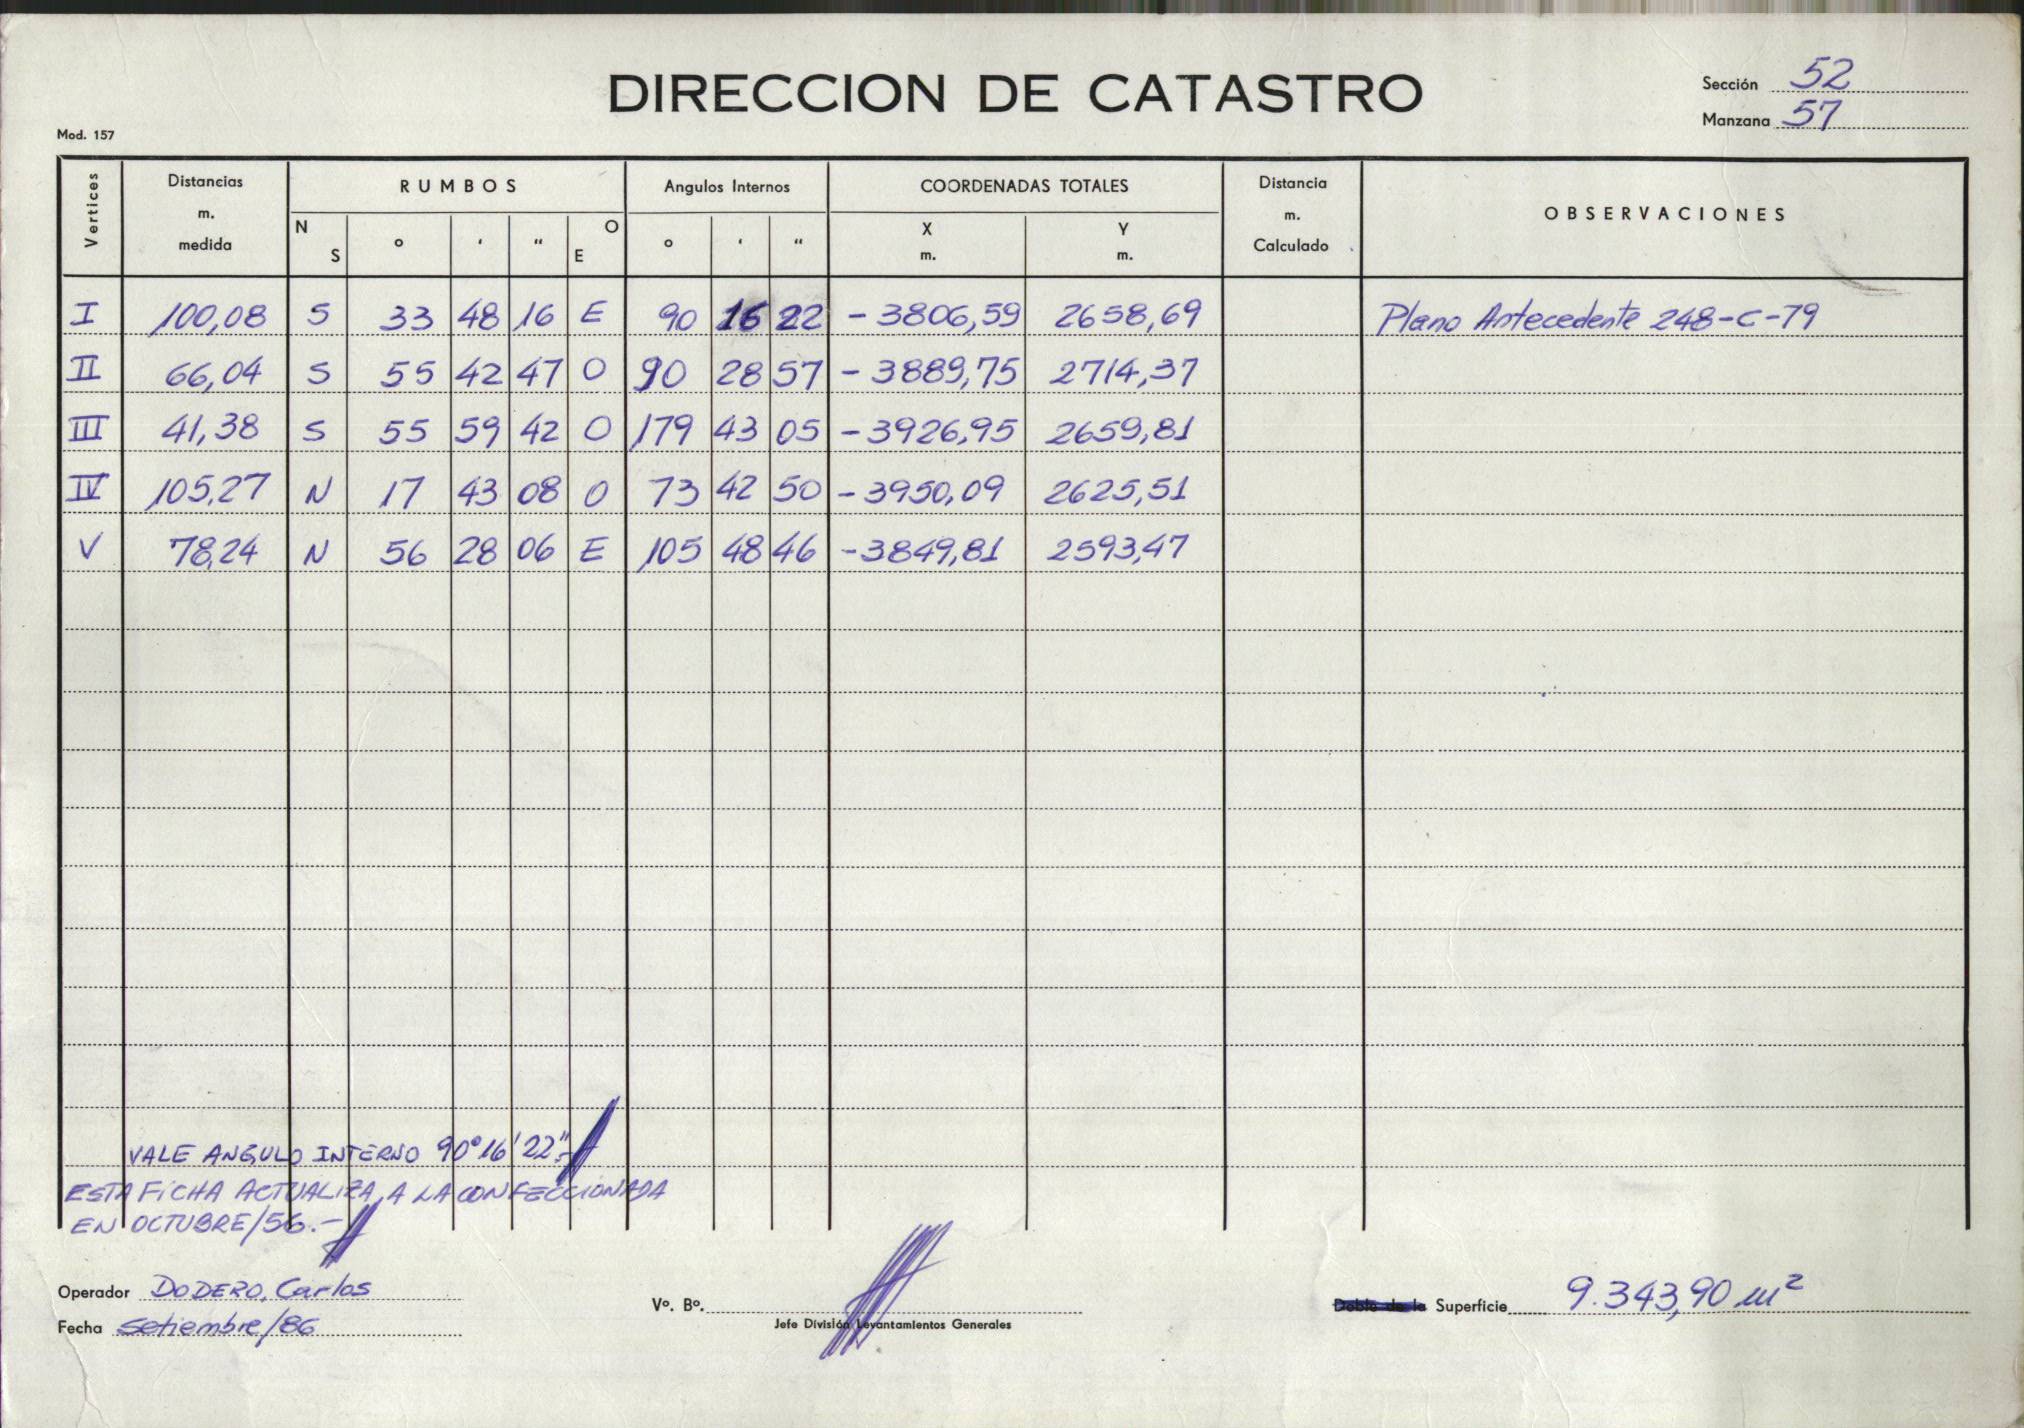 DIRECCION DE CATASTRO
Sección 52
Manzana 57
Mod. 157
Vertices Distancias m. medida RUMBOS Angulos Internos COORDENADAS TOTALES Distancia m. Calculado OBSERVACIONES
N S ° ‘ “ O E ° ‘ “ X m. Y m.
I 100,08 S 33 48 16 E 90 16 22 - 3806,59 2658,69 Plano Antecedente 248-C-79
II 66,04 S 55 42 47 O 90 28 57 - 3889,75 2714,37
III 41,38 S 55 59 42 O 179 43 05 - 3926,95 2659,81
IV 105,27 N 17 43 08 O 73 42 50 - 3950,09 2625,51
V 78,24 N 56 28 06 E 105 48 46 - 3849,81 2593,47
VALE ANGULO INTERNO 90° 16' 22".-
ESTA FICHA ACTUALIZA, A LA CONFECCIONADA
EN OCTUBRE/56.-
Operador DODERO, Carlos
Fecha setiembre/86
Vº. Bº.
Jefe División Levantamientos Generales
Doble de la Superficie 9.343,90 m²